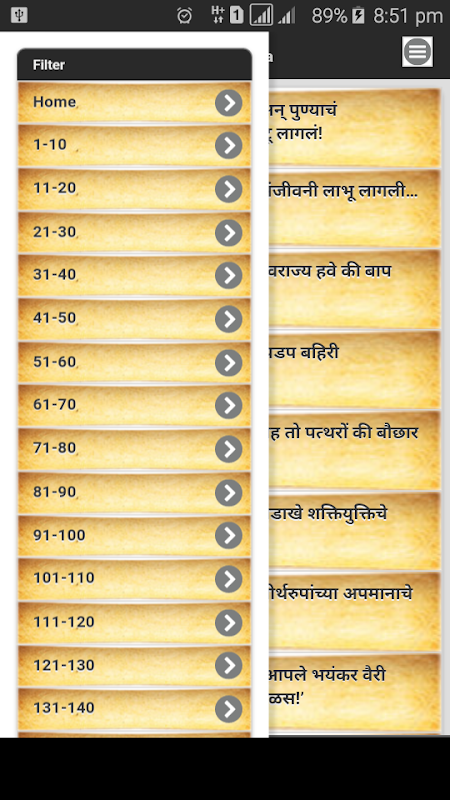 89% 8:51 pm
Filter
Home
1-10
11-20
21-30
31-40
41-50
51-60
61-70
71-80
81-90
91-100
101-110
111-120
121-130
131-140
a
पुण्याचं
लागलं!
लाभू लागली...
हवे की बाप
बहिरी
तो पत्थरों की बौछार
शक्तियुक्तिचे
अपमानाचे
आपले भयंकर वैरी